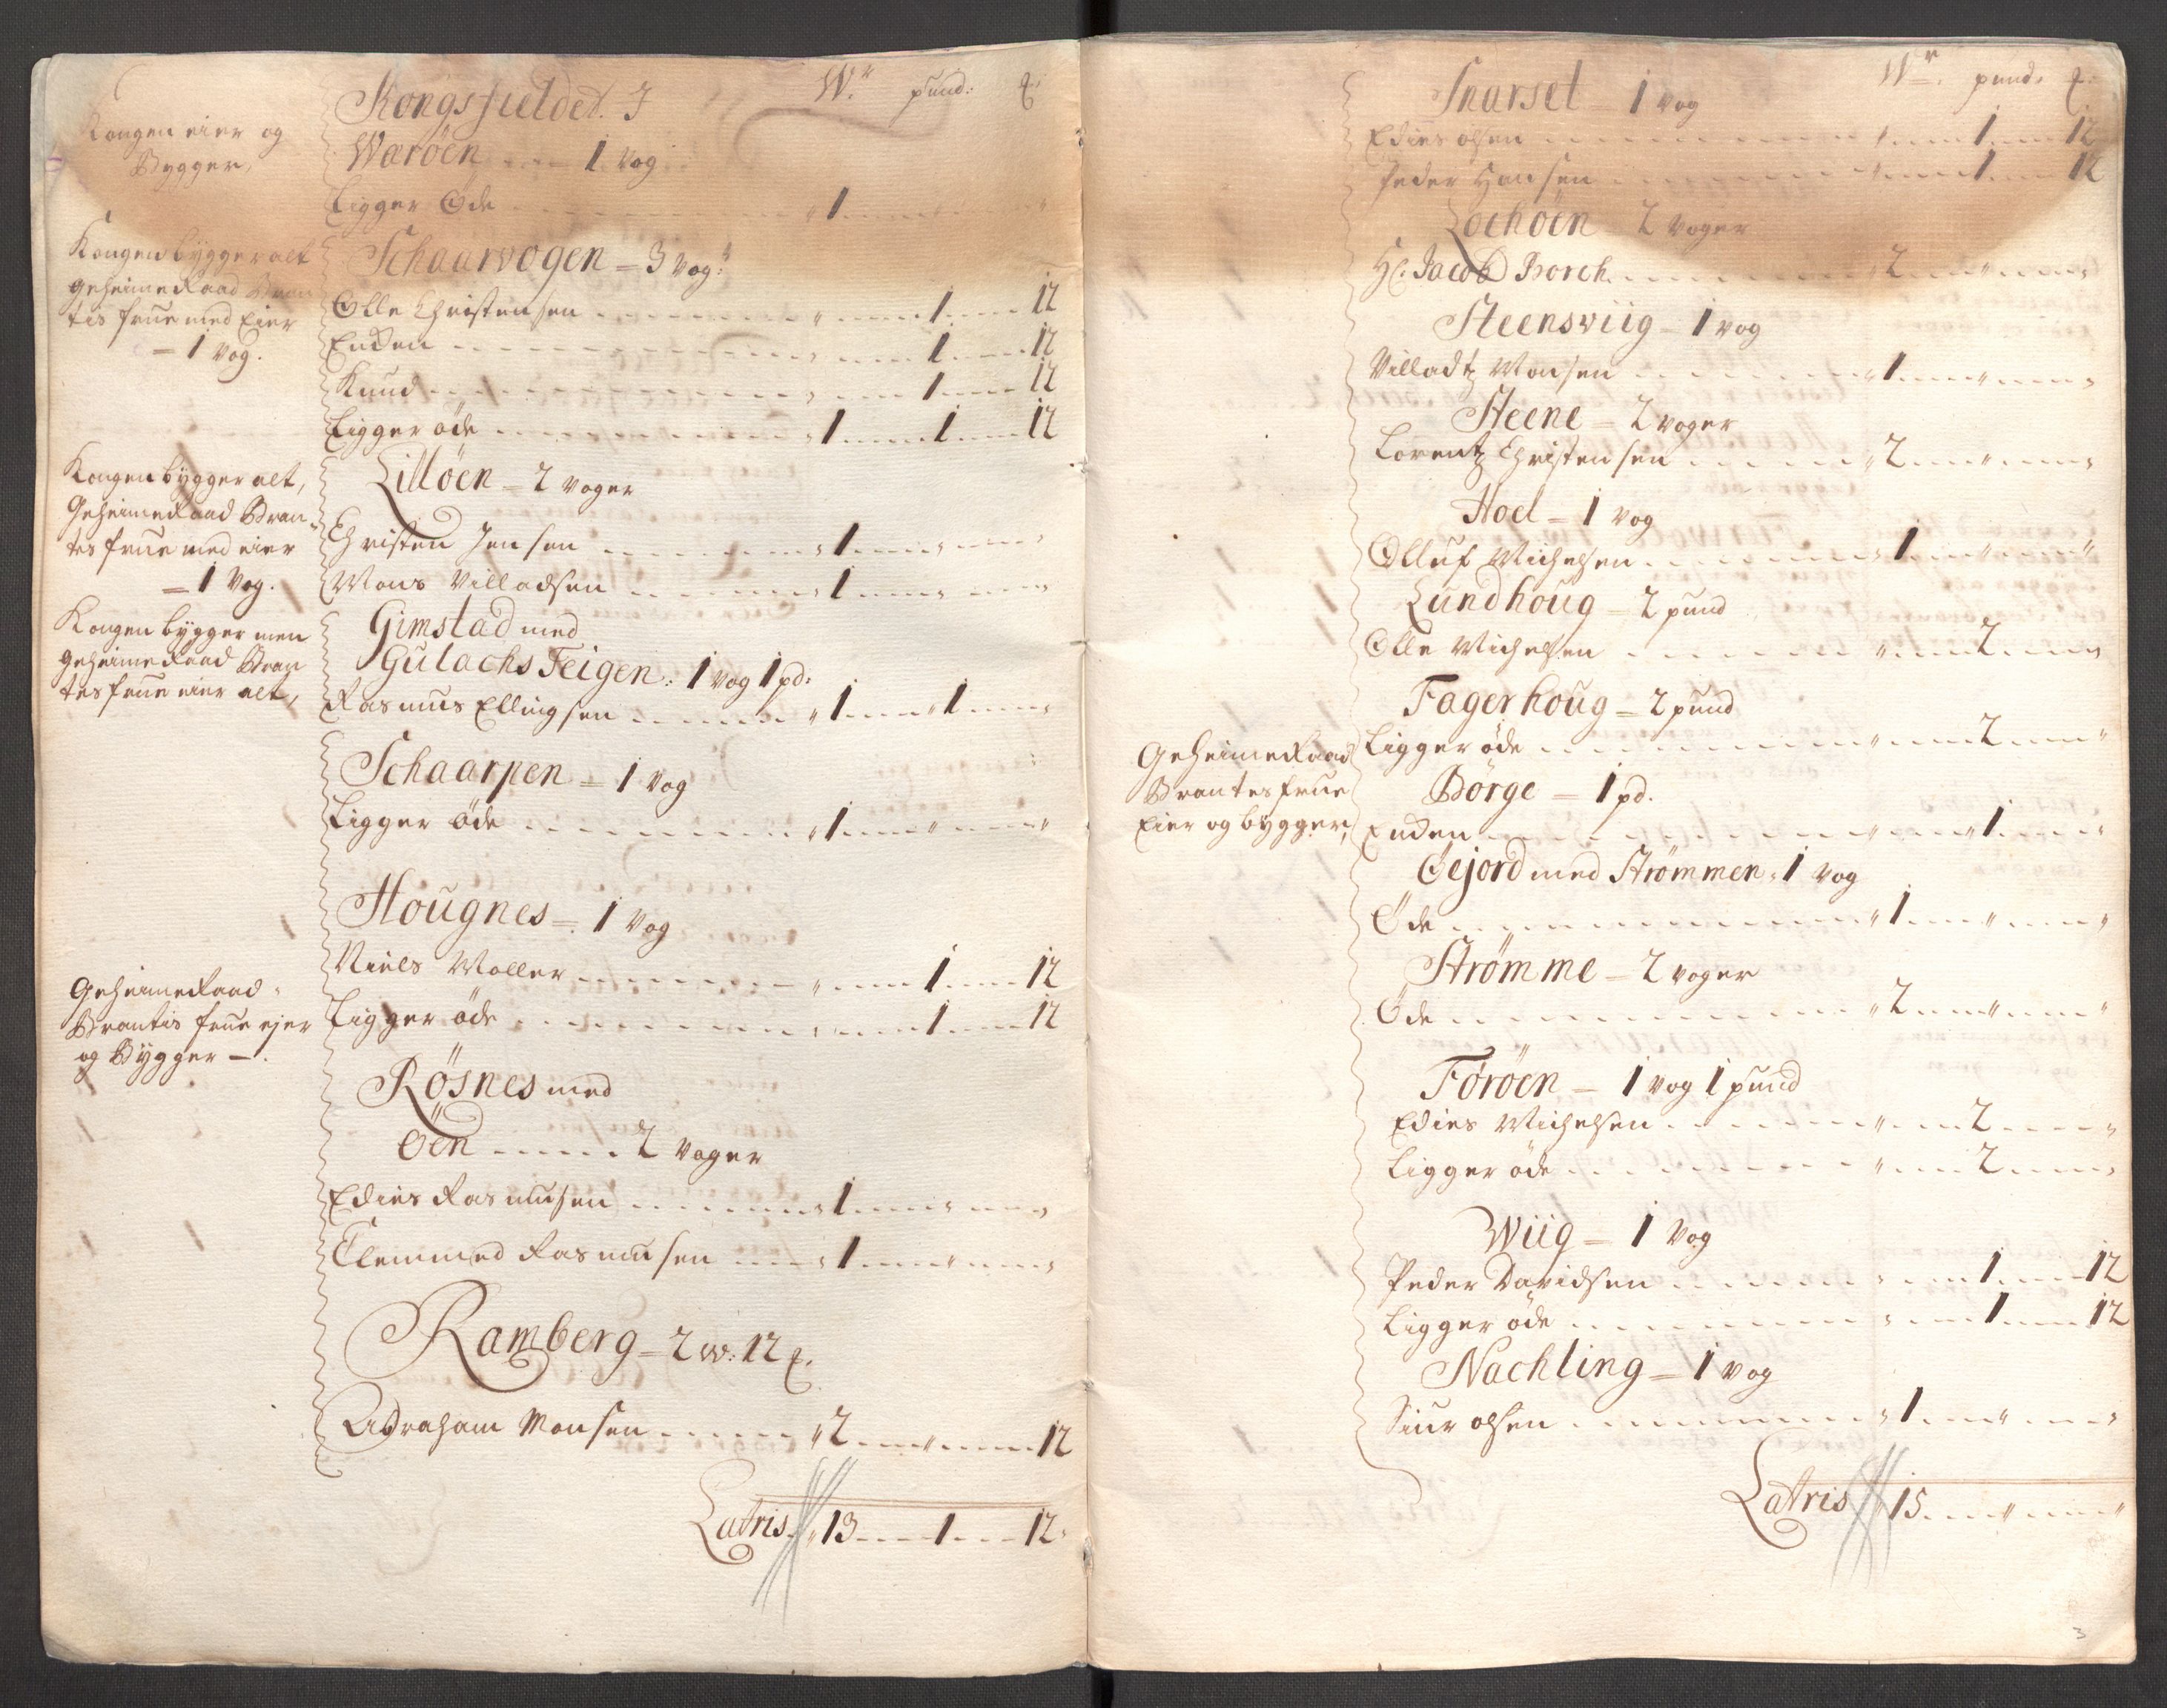 W.r pund: ℔.
Kongsfieldet. I
Kongen eier og
Bygger,
Waröen - - - 1 vog
Ligger Øde - - - " 1 - - - " - - - "
Kongen bygger alt
geheimeRaad Bran
tis frue med Eier
= 1 vog.
Schaarvogen = 3 vog:r
Olle Christensen - - - " - - - 1 - - - 12
Enden - - - " - - - 1 - - - 12
Knud - - - " - - - 1 - - - 12
Ligger øde - - - " 1 - - - 1 - - - 12
Kongen bygger alt,
GeheimeRaad Bran-
tes frue med eier
= 1 vog.
Lilløen = 2 voger
Christen Jensen - - - " 1 - - - " - - - "
Mons Villadsen - - - " 1 - - - " - - - "
Kongen bygger men
geheimeRaad Bran
tes frue eier alt,
Gimstad med
Gulachs Teigen: 1 vog 1 pd:
Rasmus Ellingsen - - - " 1 - - - " 1 - - - "
Schaarpen = 1 vog
Ligger øde - - - " 1 - - - " - - - "
Hougnes = 1 vog
Niels Moller - - - " - - - 1 - - - 12
GeheimeRaad
Brantis frue ejer
og Bygger —.
Ligger øde - - - " - - - 1 - - - 12
Røsnes med
Øen - - - 2 voger
Edies Rasmusen - - - " 1 - - - " - - - "
Clemmed Rasmusen - - - " 1 - - - " - - - "
Ramberg = 2 w: 12 ℔.
Abraham Monsen - - - " 2 - - - " - - - 12
Latris " 13 - - - 1 - - - 12 "
W.r pund: ℔.
Snarset = 1 vog
Edies olsen - - - " - - - 1 - - - 12
Peder Hansen - - - " - - - 1 - - - 12
Lochøen = 2 voger
Hr. Jacob Borch - - - " 2 - - - " - - - "
Steensviig = 1 vog
Villadtz Monsen - - - " 1 - - - " - - - "
Steene = 2 voger
Lorentz Christensen - - - " 2 - - - " - - - "
Hoel = 1 vog
Olluf Michelsen - - - " 1 - - - " - - - "
Lundhoug = 2 pund
Olle Michelsen - - - " - - - 2 - - - "
Fagerhoug = 2 pund
Ligger øde - - - " - - - 2 - - - "
GeheimeRaad
Brantes frue
Eier og bygger,
Börge = 1 pd.
Enden - - - " - - - 1 - - - "
Øejord med Strømmen = 1 vog
Øde - - - " 1 - - - " - - - "
Strømme = 2 voger
Øde - - - " 2 - - - " - - - "
Førøen = 1 vog 1 pund
Edies Michelsen - - - " - - - 2 - - - "
Ligger øde - - - " - - - 2 - - - "
Wiig = 1 vog
Peder Davidsen - - - " - - - 1 - - - 12
Ligger øde - - - " - - - 1 - - - 12
Nachling = 1 vog
Siur olsen - - - " 1 - - - " - - - "
Latris " 15 - - - " - - - "
3